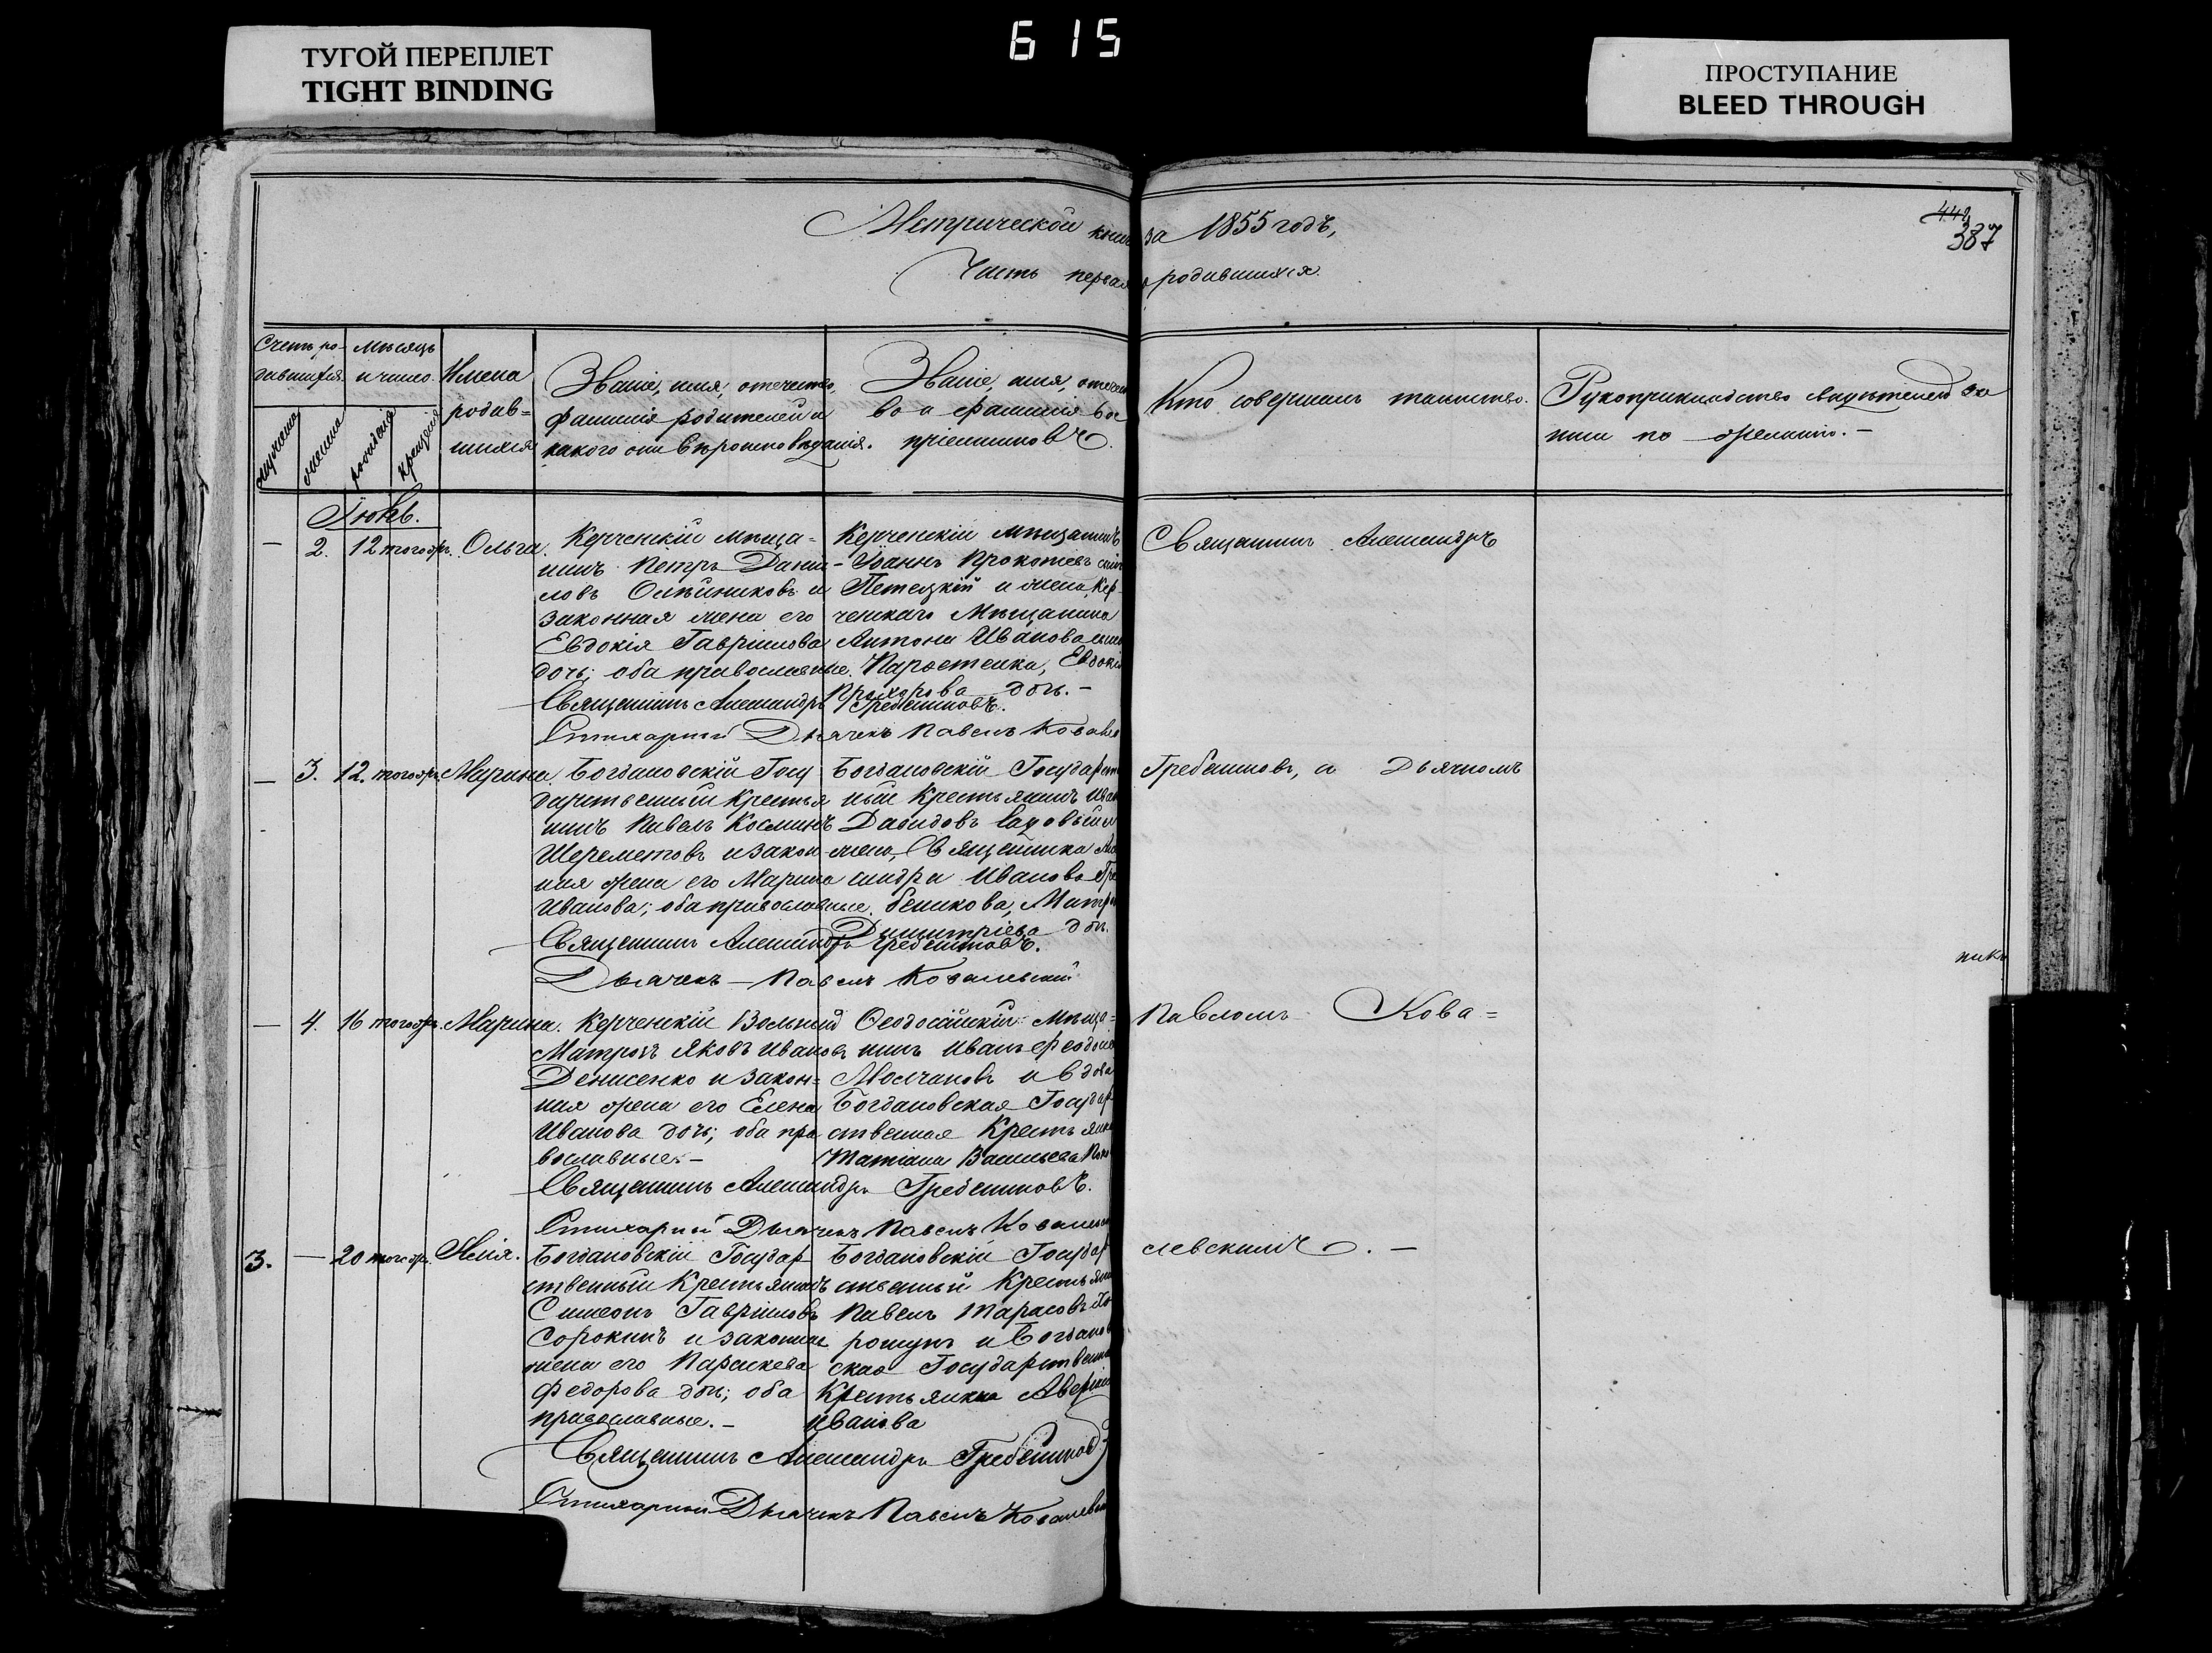 615
ТУГОЙ ПЕРЕПЛЕТ
TIGHT BINDING
ПРОСТУПАНИЕ
BLEED THROUGH
442
387
Метрической книги за 1855 годъ,
Часть первая о родившихся.
Счетъ ро-
дившихся.
мужеска
женска
Мѣсяцъ
и число.
рожденія
крещенія
Имена
родив=
шихся
Званіе, имя, отечество,
фамилія родителей и
какого они вѣроисповѣданія.
Званіе, имя, отечест
во и фамилія вос
пріемниковъ.
Кто совершалъ таинство.
Рукоприкладство свидѣтелей за
писи по желанію.-
Іюнь.
— 2. 12 тогожъ. Ольга.
Керченскій мѣща=
нинъ Петръ Данил
овъ Олѣйниковъ и
законная жена его
Евдокія Гавріилова
дочь; оба православные.
Керченскій мѣщанинъ
Іоаннъ Прокопіевъ сынъ
и жена Кер
ченскаго Мѣщанина
Антона Иванова
Евдокія
Прохорова дочь.-
Священникъ Александръ Гребенниковъ.
Стихарный Дьячекъ Павелъ Ковалев
Священникъ Александръ
— 3. 12. тогожъ. Марина
Богдановскій Госу
дарственный Крестья
нинъ Павелъ Косминъ
Шереметовъ и закон
ная жена его Марина
Иванова; оба православные.
Богдановскій Государст
ный Крестьянинъ Иван
Давидовъ
жена, Священника Але
ксандра Иванова Гре
беникова, Матро
Димитріева дочь.
Священникъ Александръ Гребенниковъ.
Дьячекъ — Павелъ Ковалевскій
Гребенниковъ, съ Дьячкомъ
— 4. 16 тогожъ. Марина.
Керченскій Вольный
Матрозъ Яковъ Ивановъ
Денисенко и закон=
ная жена его Елена
Иванова дочь; оба пра
вославные.-
Ѳеодосійскій мѣща=
нинъ Иванъ Феодосіе
Молчановъ и вдова
Богдановская Государ
ственная Крестьянка
Татіана Васильева
Священникъ Александръ Гребенниковъ.
Стихарный Дьячекъ Павелъ Ковалевск
Павломъ Кова=
3. — 20 тогожъ.
Богдановскій Государ
ственный Крестьянинъ
Симеонъ Гавріиловъ
Сорокинъ и законная
жена его Параскева
Федорова дочь; оба
православные.-
Богдановскій Государ
ственный Крестьян
Павелъ Тарасовъ
и Богданов
ская Государственна
Крестьянка
Иванова
Священникъ Александръ Гребенниковъ
Стихарный Дьячекъ Павелъ Ковалевск
левскимъ.—